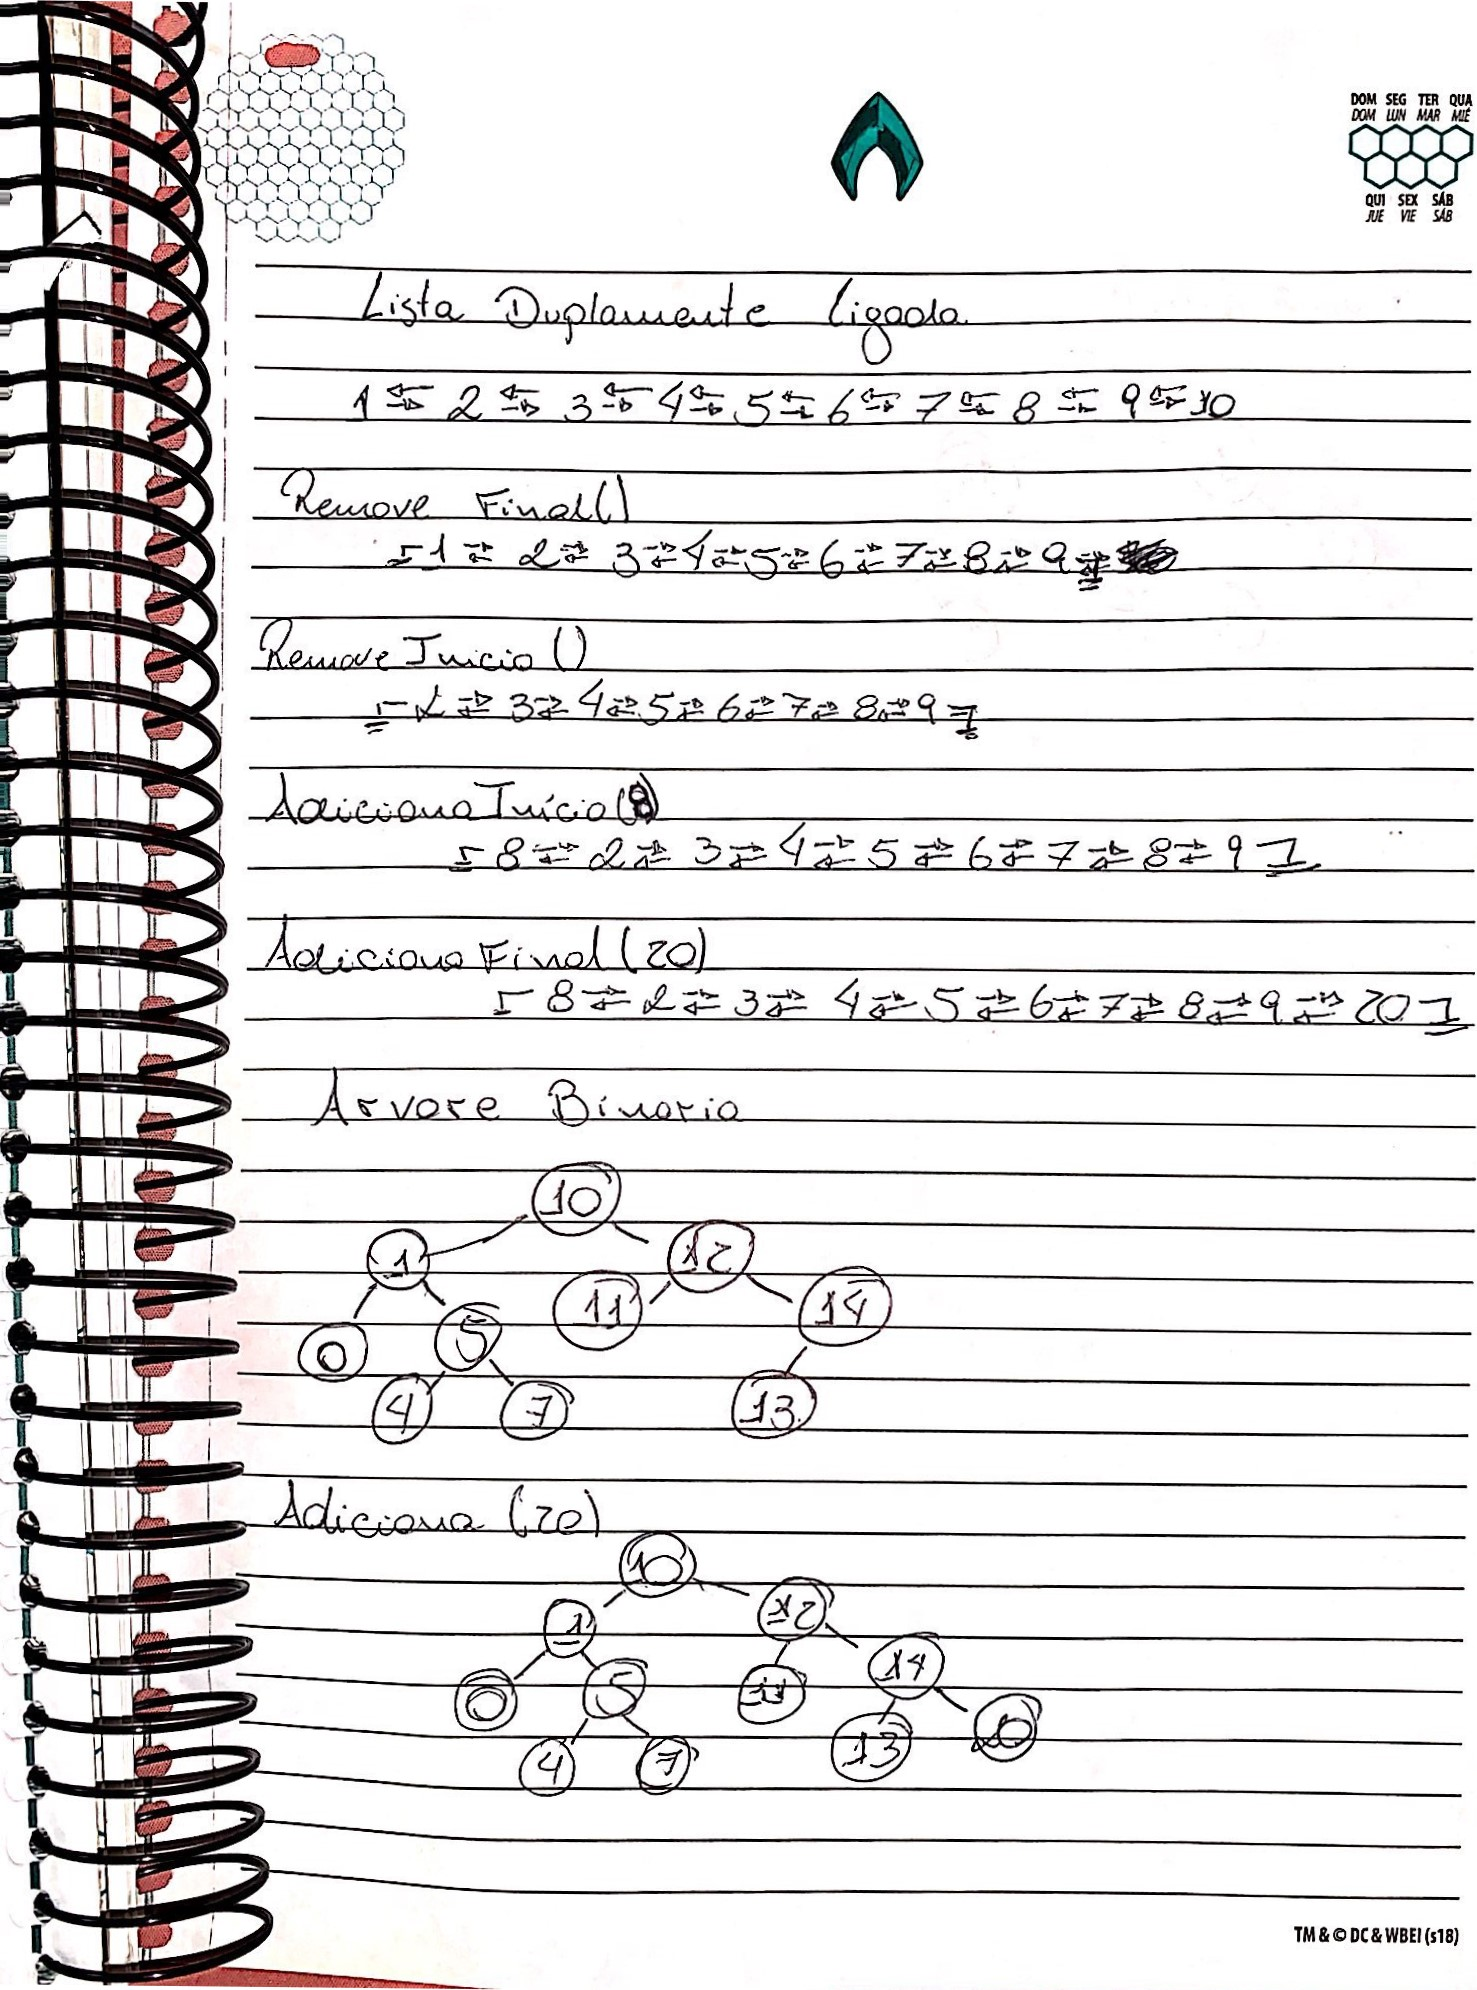 DOM SEG TER QUA
DOM LUN MAR MIÉ
QUI SEX SÁB
JUE VIE SÁB
Lista Duplamente Ligada
1 ⇆ 2 ⇆ 3 ⇆ 4 ⇆ 5 ⇆ 6 ⇆ 7 ⇆ 8 ⇆ 9 ⇆ 10
Remove Final()
1 ⇄ 2 ⇄ 3 ⇄ 4 ⇄ 5 ⇄ 6 ⇄ 7 ⇄ 8 ⇄ 9
Remove Inicio ()
2 ⇄ 3 ⇄ 4 ⇄ 5 ⇄ 6 ⇄ 7 ⇄ 8 ⇄ 9
Adiciona Início (8)
8 ⇄ 2 ⇄ 3 ⇄ 4 ⇄ 5 ⇄ 6 ⇄ 7 ⇄ 8 ⇄ 9
Adiciona Final (20)
8 ⇄ 2 ⇄ 3 ⇄ 4 ⇄ 5 ⇄ 6 ⇄ 7 ⇄ 8 ⇄ 9 ⇄ 20
Arvore Binaria
10
1 12
0 5 11 14
4 7 13
Adiciona (20)
10
1 12
0 5 11 14
4 7 13 20
TM & © DC & WBEI (s18)